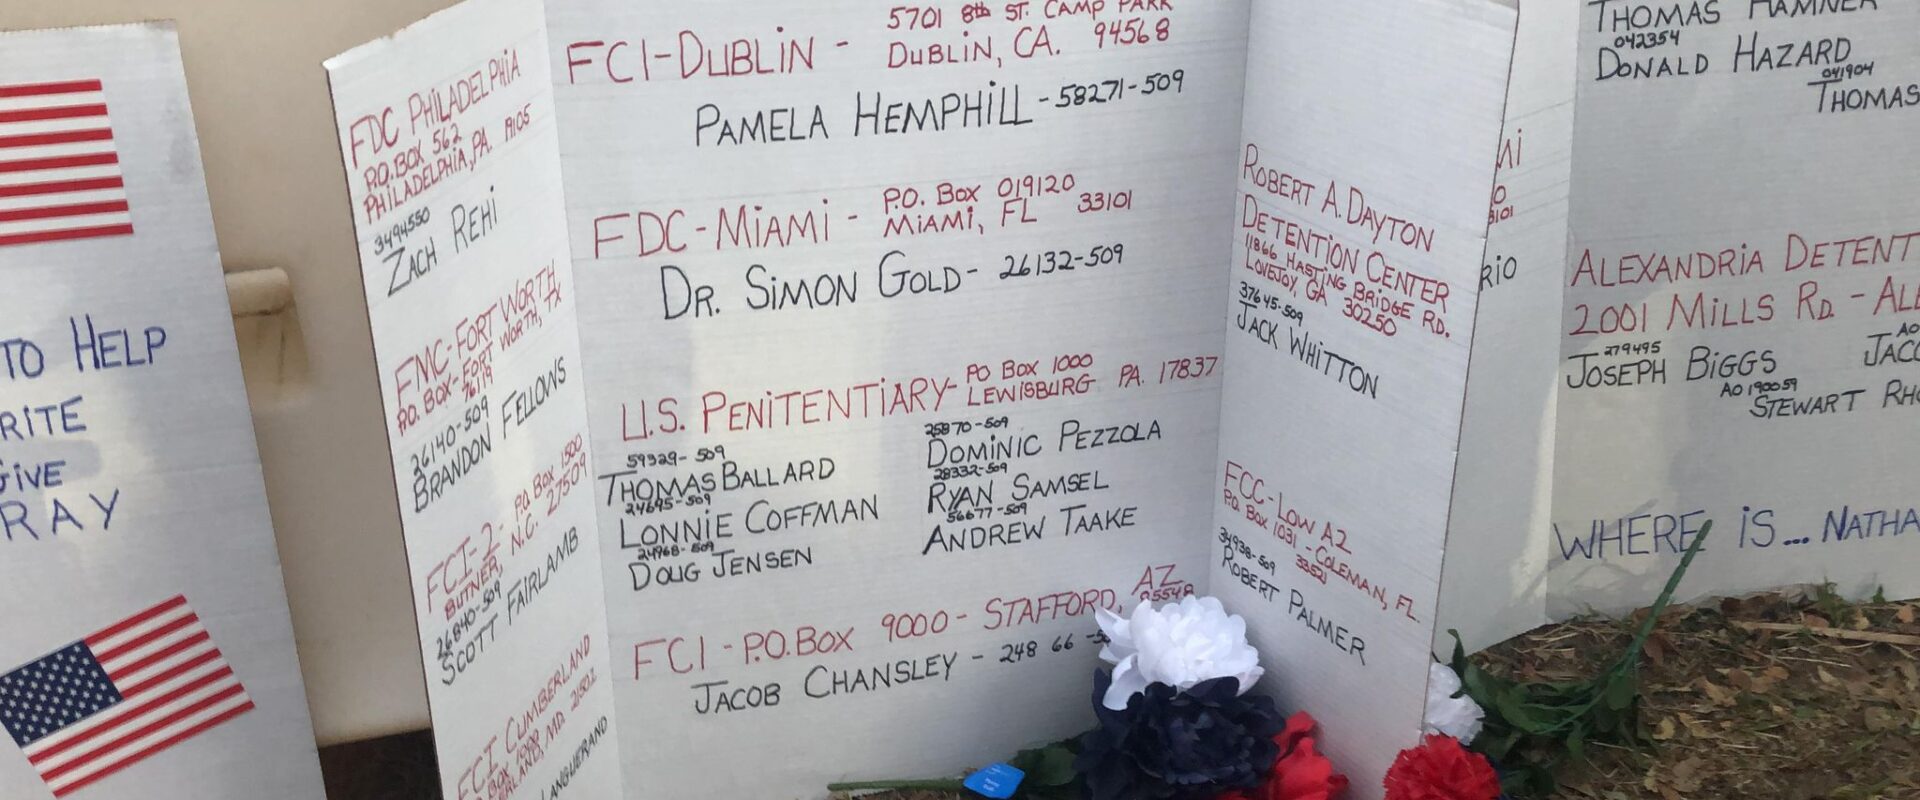 TO HELP
RITE
GIVE
RAY
FDC PHILADELPHIA
P.O. BOX 562
PHILADELPHIA, PA. 19105
3494550
ZACH REHI
FMC-FORT WORTH
P.O. BOX - FORT WORTH, TX
76119
26140-509
BRANDON FELLOWS
FCI-2 - P.O. BOX 1500
BUTNER, N.C. 27509
26840-509
SCOTT FAIRLAMB
FCI CUMBERLAND
BOX 1000
ERLAND, MD. 21502
LANGUERAND
5701 8th ST. CAMP PARK
FCI-DUBLIN - DUBLIN, CA. 94568
PAMELA HEMPHILL - 58271-509
FDC-MIAMI - P.O. BOX 019120
MIAMI, FL 33101
DR. SIMON GOLD - 26132-509
U.S. PENITENTIARY - PO BOX 1000
LEWISBURG PA. 17837
59329-509
THOMAS BALLARD
24695-509
LONNIE COFFMAN
24968-509
DOUG JENSEN
25870-509
DOMINIC PEZZOLA
28332-509
RYAN SAMSEL
56677-509
ANDREW TAAKE
FCI - P.O. BOX 9000 - STAFFORD, AZ
85548
JACOB CHANSLEY - 248 66 -50
ROBERT A. DAYTON
DETENTION CENTER
11866 HASTING BRIDGE RD.
LOVEJOY, GA 30250
37645-509
JACK WHITTON
FCC-LOW A2
P.O. BOX 1031 - COLEMAN, FL.
33521
34938-509
ROBERT PALMER
3101
RIO
THOMAS HAMNER
042354
DONALD HAZARD
041904
THOMAS
ALEXANDRIA DETENT
2001 MILLS RD - ALE
279495
JOSEPH BIGGS
AO
JACO
AO190059
STEWART RHO
WHERE IS... NATHA